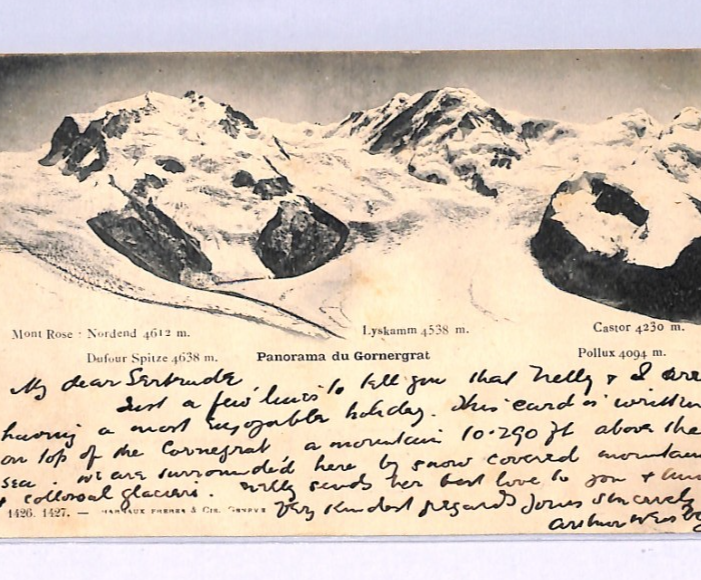 Mont Rose : Nordend 4612 m.
Lyskamm 4538 m.
Castor 4230 m.
Dufour Spitze 4638 m.
Panorama du Gornergrat
Pollux 4094 m.
My dear Gertrude
Just a few lines to tell you that Nelly & I are
having a most enjoyable holiday. This card is written
on top of the Cornegrat a mountain 10.290 ft above the
sea. we are surrounded here by snow covered mountain
& collossal glaciers. Nelly sends her best love to you &
Very kindest regards Yours sincerely
1426. 1427. — & Cie, Genève
Arthur